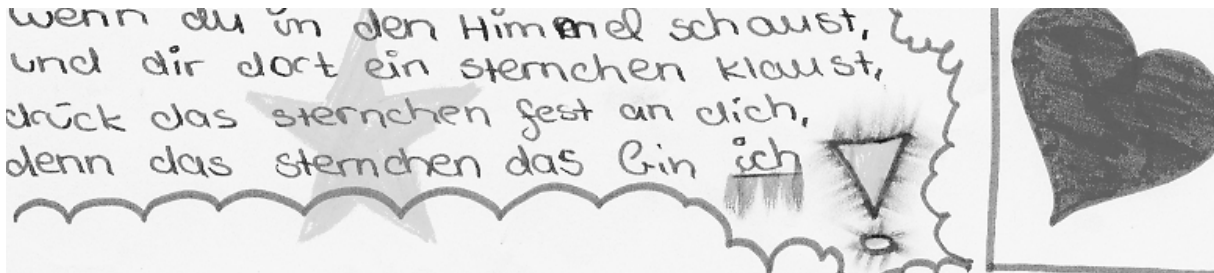 wenn du in den Himmel schaust,
und dir dort ein sternchen klaust,
drück das sternchen fest an dich,
denn das sternchen das bin ich!